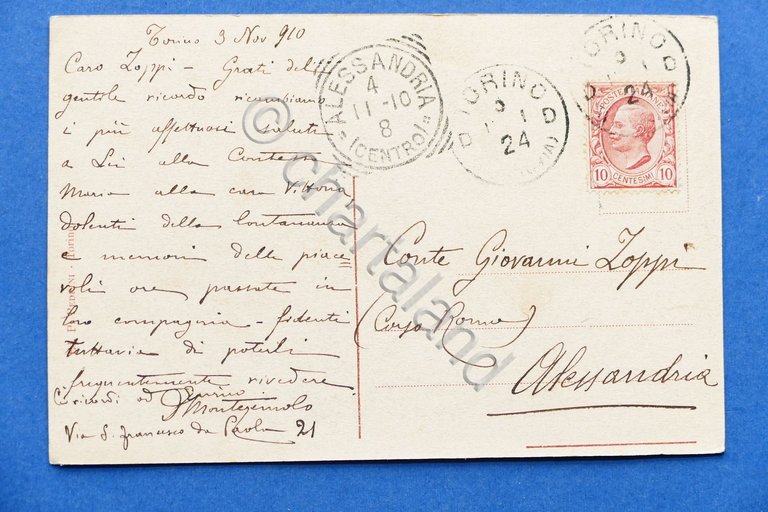 Torino 3 Nov 910
Caro Zoppi - Grati del
gentile ricordo ricambiamo
i più affettuosi saluti
a Lei alla Contessa
Maria alla cara Vittoria,
dolenti della lontananza
e memori delle piace
voli ore passate in
loro compagnia - fidenti
tuttavia di poterli
frequentemente rivedere.
Ci ricordi ad Enrico
Montezemolo
Via S. Francesco da Paola 21
ALESSANDRIA
4
11-10
8
(CENTRO)
TORINO
24
TORINO
24
POSTE ITALIANE
10 CENTESIMI 10
Conte Giovanni Zoppi
(Corso Roma)
Alessandria
© chartaland